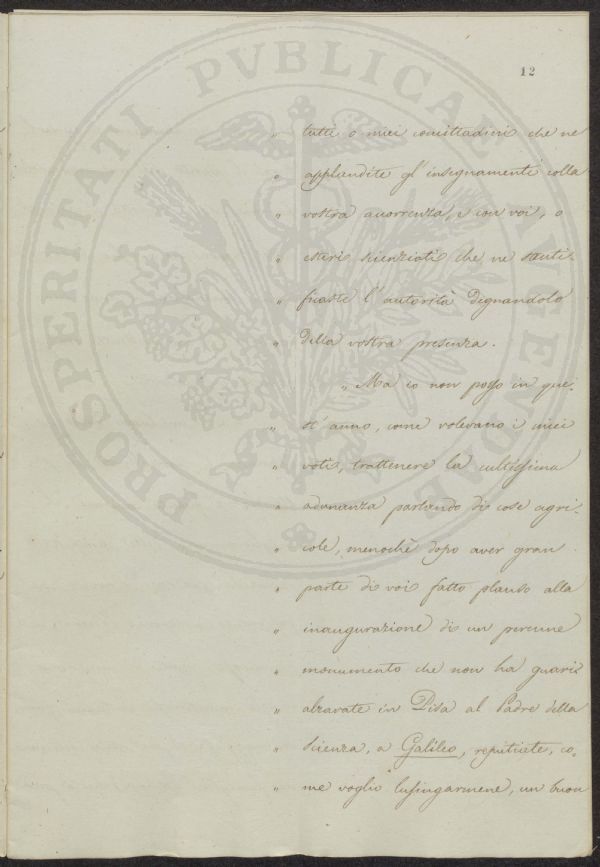 12
" tutti o miei concittadini che ne
" applaudite gl'insegnamenti colla
" vostra accorrenza, e con voi, o
" esteri scienziati che ne santi-
" ficaste l'autorità degnandolo
" della vostra presenza.
" Ma io non posso in que-
" st'anno, come volevano i miei
" voti, trattenere la cultissima
" adunanza parlando di cose agri-
" cole, menochè dopo aver gran
" parte di voi fatto plauso alla
" inaugurazione di un perenne
" monumento che non ha guari
" alzavate in Pisa al Padre della
" scienza, a Galileo, ripetiate, co-
" me voglio lusingarmene, un buon
PROSPERITATI PVBLICAE AVGENDAE